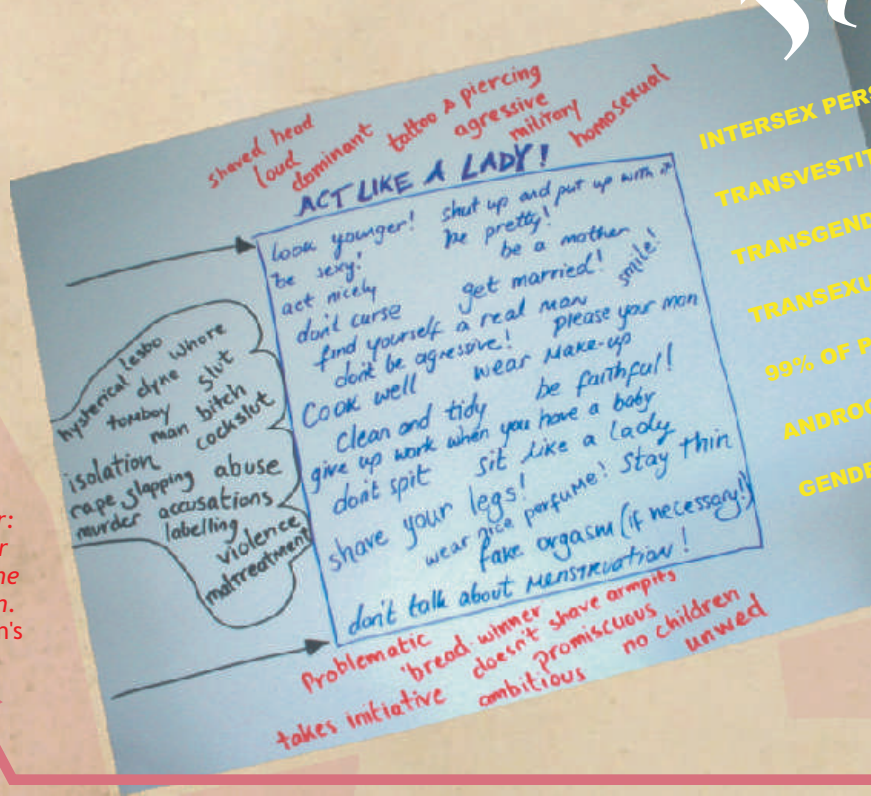 shaved head
loud
dominant
tattoo & piercing
agressive
military
homosexual
ACT LIKE A LADY!
look younger! shut up and put up with it
be sexy! be pretty!
act nicely be a mother
don't curse get married! smile!
find yourself a real man
don't be agressive! please your man
COOK well wear make-up
clean and tidy be faithful!
give up work when you have a baby
don't spit sit like a lady
shave your legs! stay thin
wear nice perfume!
fake orgasm (if necessary!)
don't talk about menstruation!
hysterical lesbo
dyne whore
tomboy slut
man bitch
cockslut
isolation
rape slapping abuse
murder accusations
labelling
violence
maltreatment
Problematic
'bread winner
doesn't shave armpits
takes initiative
promiscuous
ambitious
no children
unwed
INTERSEX PERS
TRANSVESTIT
TRANSGEND
TRANSEXU
99% OF P
ANDROG
GENDE
r:
r
ne
n.
n's